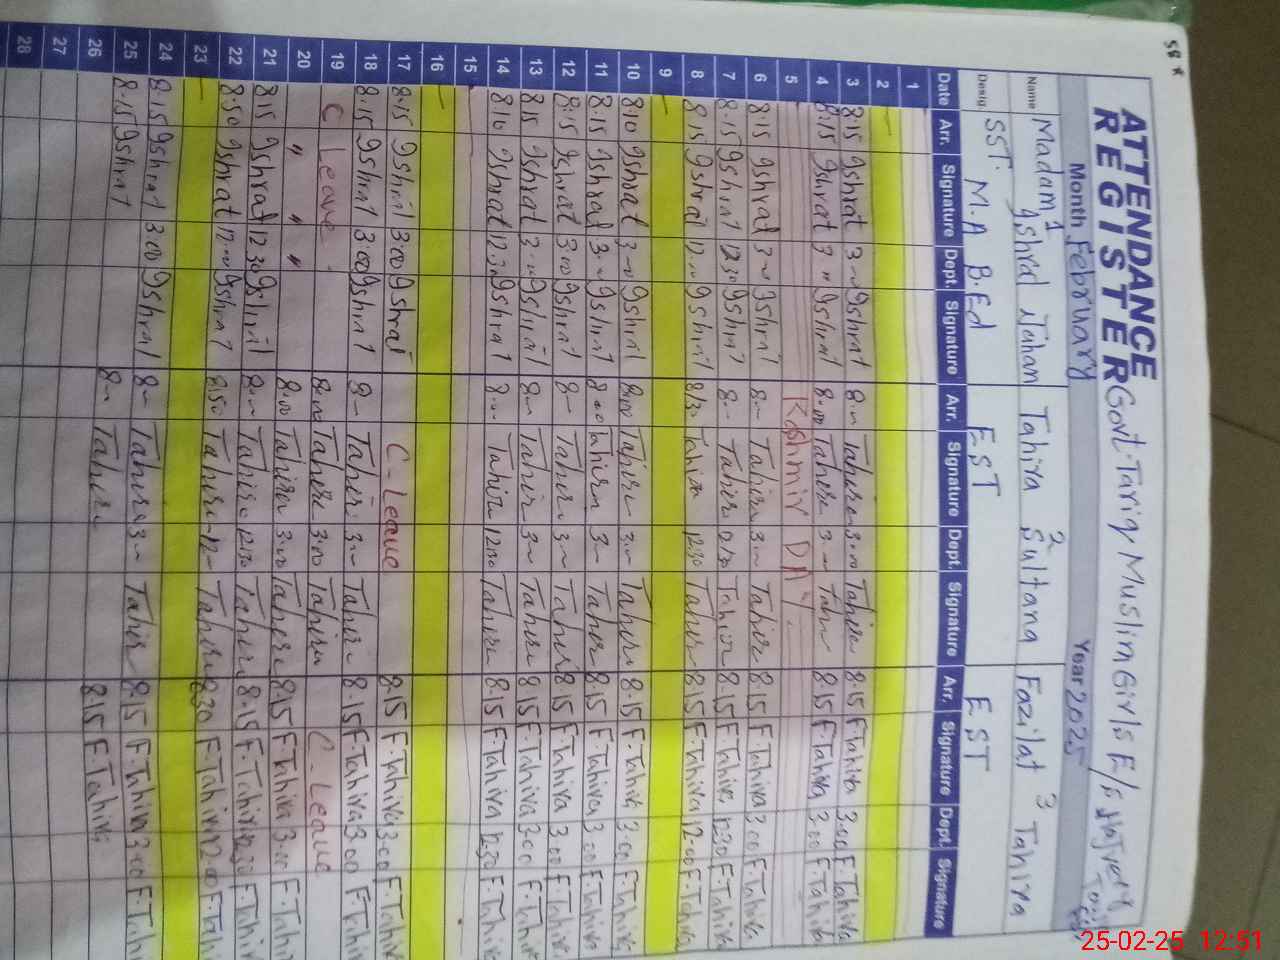 58 *
ATTENDANCE
REGISTER
Govt. Tariq Muslim Girls E/S
Month February Year 2025
Name Madam Ishrat Jahan 1 Tahira Sultana 2 Fazilat Tahira 3
Desig. SST. M.A B.Ed EST EST
Date Arr. Signature Dept. Signature Arr. Signature Dept. Signature Arr. Signature Dept. Signature
1
2
3 8:15 Ishrat 3 Ishrat 8 Tahira 3:00 Tahira 8:15 F.Tahira 3:00 F.Tahira
4 8:15 Ishrat 3 Ishrat 8:00 Tahira 3 Tahira 8:15 F.Tahira 3:00 F.Tahira
5 Kashmir Day
6 8:15 Ishrat 3 Ishrat 8 Tahira 3 Tahira 8:15 F.Tahira 3:00 F.Tahira
7 8:15 Ishrat 12:30 Ishrat 8 Tahira Tahira 8:15 F.Tahira 12:30 F.Tahira
8 8:15 Ishrat 12:00 Ishrat Tahira Tahira 8:15 F.Tahira 12:00 F.Tahira
9
10 8:10 Ishrat 3 Ishrat 8:00 Tahira 3 Tahira 8:15 F.Tahira 3:00 F.Tahira
11 8:15 Ishrat 3 Ishrat 8:00 Tahira 3 Tahira 8:15 F.Tahira 3:00 F.Tahira
12 8:15 Ishrat 3:00 Ishrat 8 Tahira 3 Tahira 8:15 F.Tahira 3:00 F.Tahira
13 8:15 Ishrat 3:00 Ishrat 8 Tahira 3 Tahira 8:15 F.Tahira 3:00 F.Tahira
14 8:10 Ishrat 12:30 Ishrat 8:00 Tahira 12:30 Tahira 8:15 F.Tahira 12:30 F.Tahira
15
16
17 8:15 Ishrat 3:00 Ishrat C-Leave 8:15 F.Tahira 3:00 F.Tahira
18 8:15 Ishrat 3:00 Ishrat 8 Tahira 3 Tahira 8:15 F.Tahira 3:00 F.Tahira
19 C Leave 8:00 Tahira 3:00 Tahira C-Leave
20 " " " 8:00 Tahira 3:00 Tahira 8:15 F.Tahira 3:00 F.Tahira
21 8:15 Ishrat 12:30 Ishrat 8:00 Tahira 12:30 Tahira 8:15 F.Tahira 12:30 F.Tahira
22 8:50 Ishrat 12:00 Ishrat 8:50 Tahira 12 Tahira 8:30 F.Tahira 12:00 F.Tahira
23
24 8:15 Ishrat 3:00 Ishrat 8 Tahira 3 Tahira 8:15 F.Tahira 3:00 F.Tahira
25 8:15 Ishrat 8 Tahira 8:15 F.Tahira
26
27
28
25-02-25 12:51